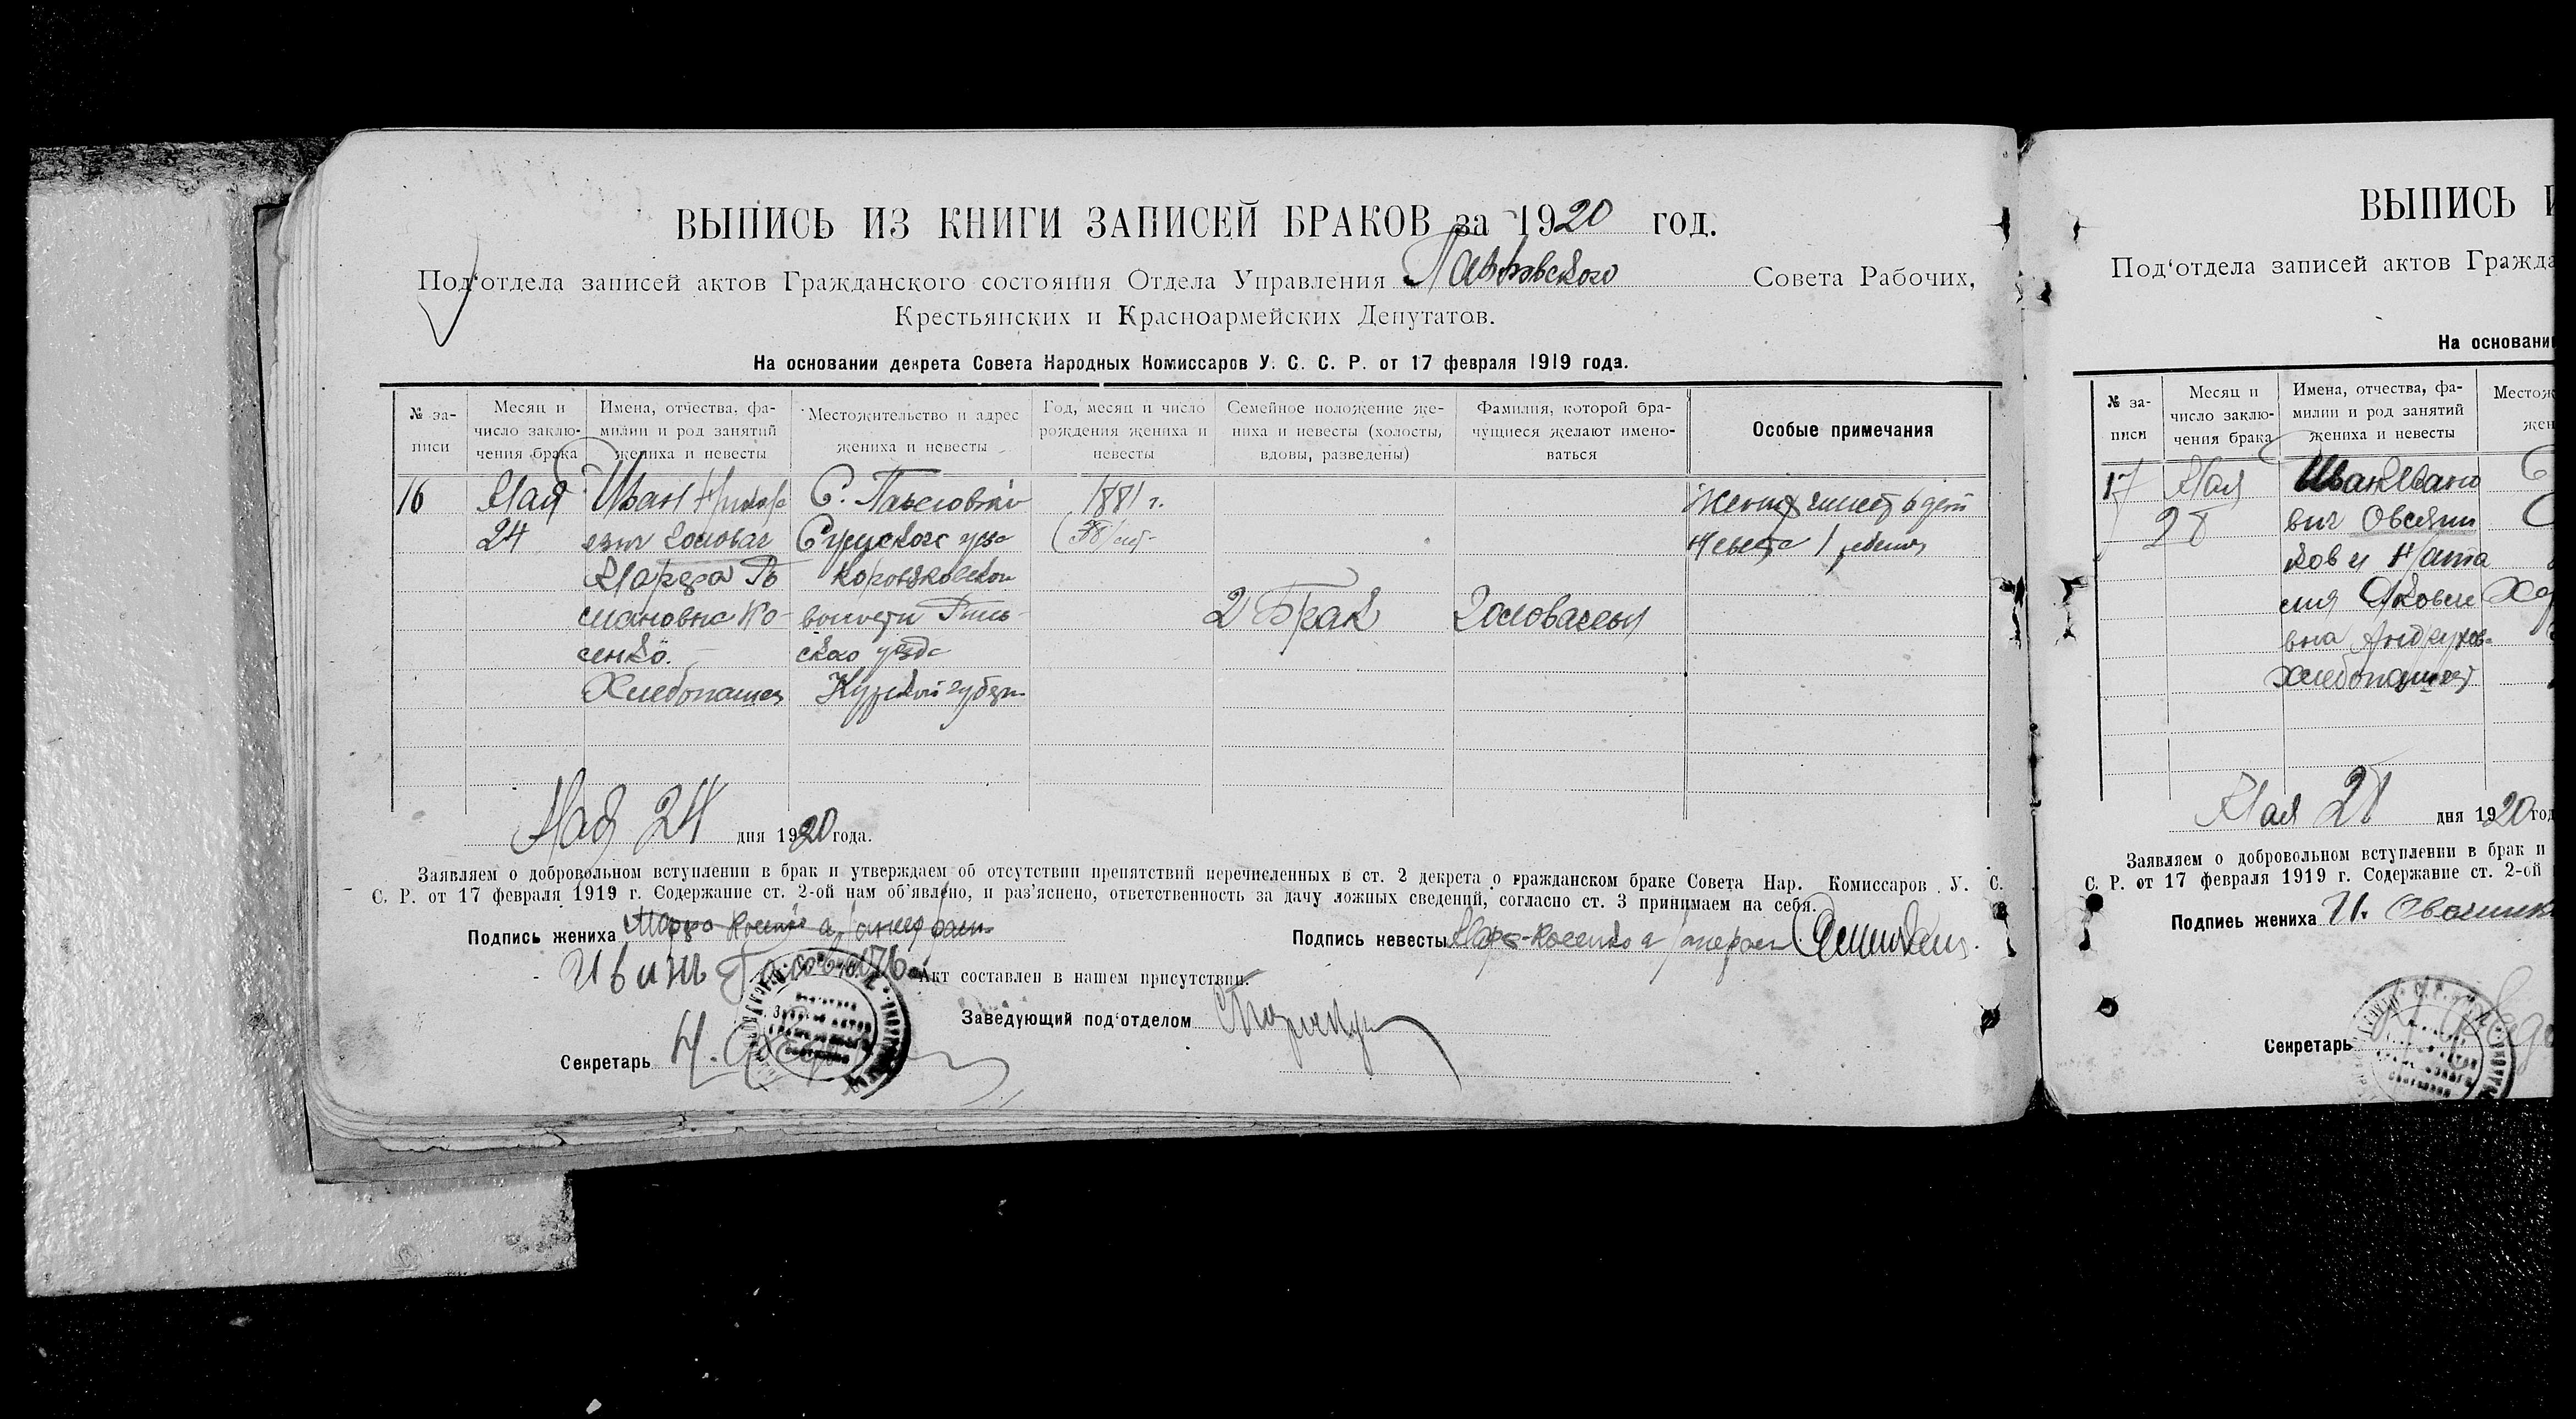 ВЫПИСЬ ИЗ КНИГИ ЗАПИСЕЙ БРАКОВ за 1920 год.
Под‘отдела записей актов Гражданского состояния Отдела Управления Павловского Совета Рабочих,
Крестьянских и Красноармейских Депутатов.
На основании декрета Совета Народных Комиссаров У. С. С. Р. от 17 февраля 1919 года.
№ за-
писи
Месяц и
число заклю-
чения брака
Имена, отчества, фа-
милии и род занятий
жениха и невесты
Местожительство и адрес
жениха и невесты
Год, месяц и число
рождения жениха и
невесты
Семейное положение же-
ниха и невесты (холосты,
вдовы, разведены)
Фамилия, которой бра-
чущиеся желают имено-
ваться
Особые примечания
16
Мая
24
Иван
Головач
Марфа Ро
мановна Ко-
сенко.
Хлебопашец
С. Павловки
Сумского уезда
волости Рыль-
ского уезда
Курской губерн
1881 г.
2 Брак
Головачевы
Жених имеет 6 детей
Невеста 1
Мая 24 дня 1920 года.
Заявляем о добровольном вступлении в брак и утверждаем об отсутствии препятствий перечисленных в ст. 2 декрета о гражданском браке Совета Нар. Комиссаров У. С.
С. Р. от 17 февраля 1919 г. Содержание ст. 2-ой нам об‘явлено, и раз‘яснено, ответственность за дачу ложных сведений, согласно ст. 3 принимаем на себя.
Подпись жениха Марфа
Подпись невесты Косенко
Акт составлен в нашем присутствии.
Заведующий под‘отделом
Секретарь
ВЫПИСЬ И
Под‘отдела записей актов Гражда
На основани
№ за-
писи
Месяц и
число заклю-
чения брака
Имена, отчества, фа-
милии и род занятий
жениха и невесты
Местож
жен
17
Мая
28
Иван Ивано
вич Овсяни
ков и Ната
лия Яковле
вна
Хлебопашец
Мая 28 дня 1920 год
Заявляем о добровольном вступлении в брак и
С. Р. от 17 февраля 1919 г. Содержание ст. 2-ой
Подпись жениха И.
Секретарь